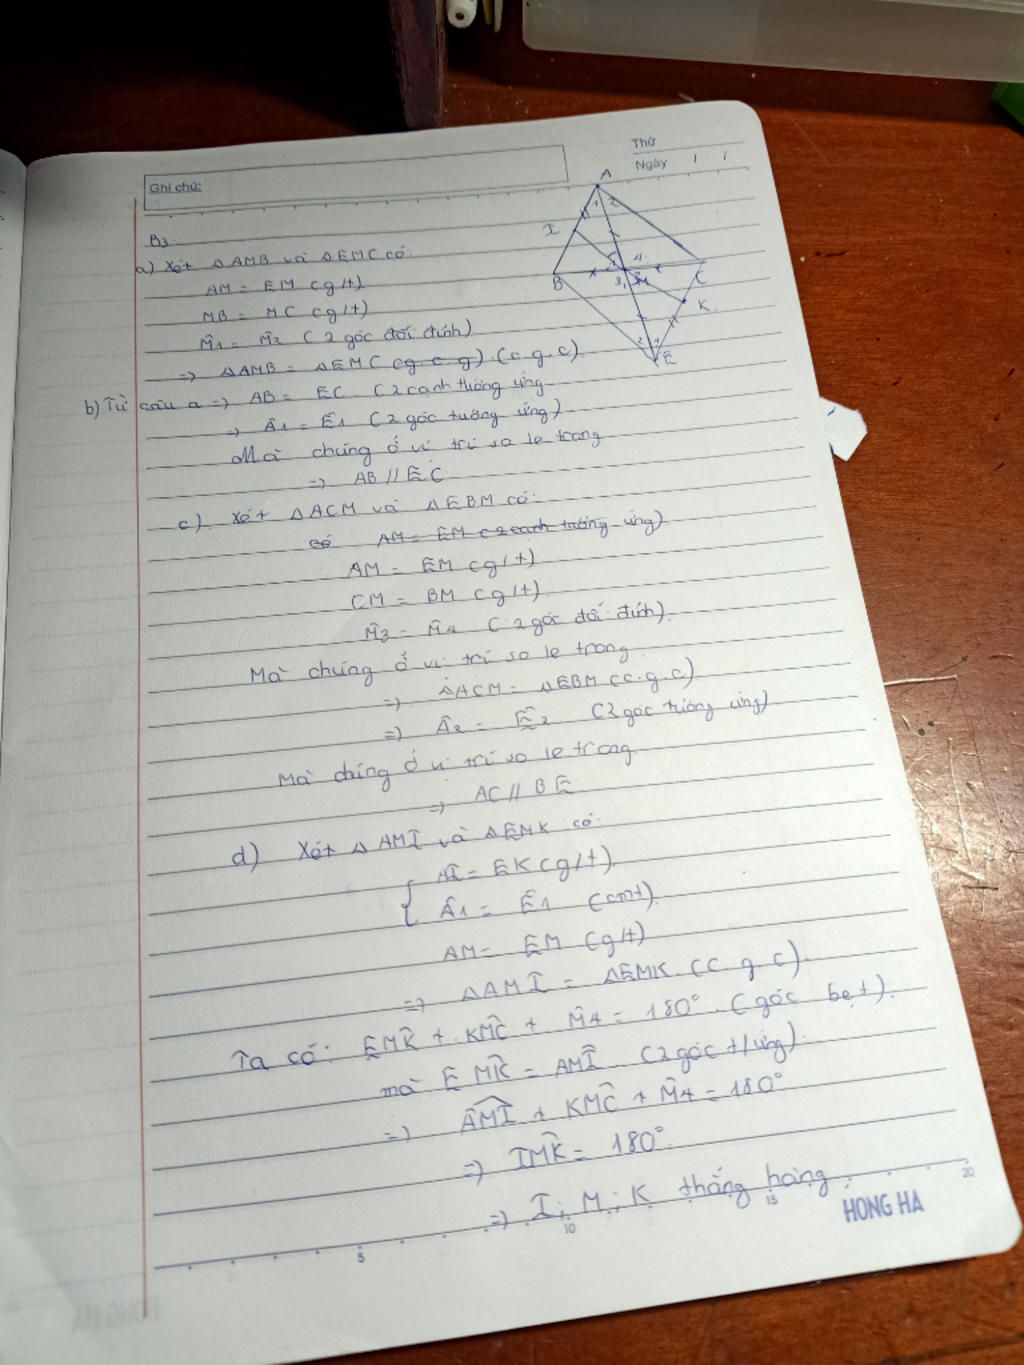 Thứ
Ngày / /
Ghi chú:
A
1 2
I
B
C
K
E
B3.
a) Xét △AMB và △EMC có:
AM = EM (g/t)
MB = MC (g/t)
M̂1 = M̂2 (2 góc đối đỉnh)
=> △AMB = △EMC (cg c g) (c.g.c)
b) Từ câu a => AB = EC (2 cạnh tương ứng
=> Â1 = Ê1 (2 góc tương ứng)
Mà chúng ở vị trí so le trong
=> AB // EC
c) Xét △ACM và △EBM có:
có AM = EM (2 cạnh tương ứng)
AM = EM (g/t)
CM = BM (g/t)
M̂3 = M̂4 (2 góc đối đỉnh)
Mà chúng ở vị trí so le trong
=> △ACM = △EBM (c.g.c)
=> Â2 = Ê2 (2 góc tương ứng)
Mà chúng ở vị trí so le trong
=> AC // BE
d) Xét △AMI và △EMK có:
AI = EK (g/t)
Â1 = Ê1 (cmt)
AM = EM (g/t)
=> △AMI = △EMK (c g c)
Ta có: EM̂K + KM̂C + M̂4 = 180° (góc bẹt).
mà EM̂K = AM̂I (2 góc t/ứng)
=> AM̂I + KM̂C + M̂4 = 180°
=> IM̂K = 180°.
=> I; M; K thẳng hàng.
5 10 15 20
HONG HA